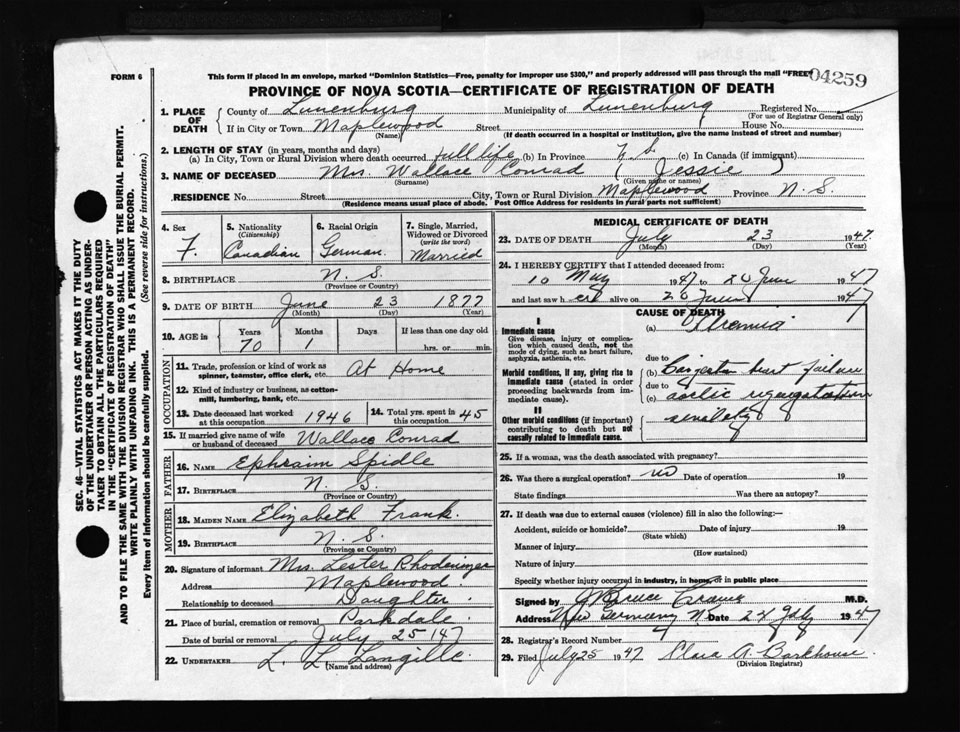 FORM 6
This form if placed in an envelope, marked "Dominion Statistics—Free, penalty for improper use $300," and properly addressed will pass through the mail "FREE"
04259
PROVINCE OF NOVA SCOTIA—CERTIFICATE OF REGISTRATION OF DEATH
SEC. 46—VITAL STATISTICS ACT MAKES IT THE DUTY
OF THE UNDERTAKER OR PERSON ACTING AS UNDER-
TAKER TO OBTAIN ALL THE PARTICULARS REQUIRED
IN THE "CERTIFICATE OF REGISTRATION OF DEATH"
AND TO FILE THE SAME WITH THE DIVISION REGISTRAR WHO SHALL ISSUE THE BURIAL PERMIT.
WRITE PLAINLY WITH UNFADING INK. THIS IS A PERMANENT RECORD.
Every item of information should be carefully supplied. (See reverse side for instructions.)
1. PLACE OF DEATH
County of Lunenburg Municipality of Lunenburg Registered No.
(For use of Registrar General only)
If in City or Town Maplewood Street House No.
(Name) (If death occurred in a hospital or institution, give the name instead of street and number)
2. LENGTH OF STAY (in years, months and days)
(a) In City, Town or Rural Division where death occurred full life (b) In Province N.S. (c) In Canada (if immigrant)
3. NAME OF DECEASED Mrs. Wallace Conrad (Jessie)
(Surname) (Given name or names)
RESIDENCE No. Street City, Town or Rural Division Maplewood Province N.S.
(Residence means usual place of abode. Post Office Address for residents in rural parts not sufficient)
4. Sex F.
5. Nationality (Citizenship) Canadian
6. Racial Origin German
7. Single, Married, Widowed or Divorced (write the word) Married
8. BIRTHPLACE N.S.
(Province or Country)
9. DATE OF BIRTH June 23 1877
(Month) (Day) (Year)
10. AGE in Years 70 Months 1 Days If less than one day old hrs. or min.
OCCUPATION
11. Trade, profession or kind of work as spinner, teamster, office clerk, etc. At Home
12. Kind of industry or business, as cotton-mill, lumbering, bank, etc.
13. Date deceased last worked at this occupation 1946
14. Total yrs. spent in this occupation 45
15. If married give name of wife or husband of deceased Wallace Conrad
FATHER
16. NAME Ephraim Spidle
17. BIRTHPLACE N.S.
(Province or Country)
MOTHER
18. MAIDEN NAME Elizabeth Frank
19. BIRTHPLACE N.S.
(Province or Country)
20. Signature of informant Mrs. Lester Rhodenizer
Address Maplewood
Relationship to deceased Daughter
21. Place of burial, cremation or removal Parkdale
Date of burial or removal July 25 '47
22. UNDERTAKER L. L. Langille
(Name and address)
MEDICAL CERTIFICATE OF DEATH
23. DATE OF DEATH July 23 1947
(Month) (Day) (Year)
24. I HEREBY CERTIFY that I attended deceased from:
10 May 1947 to 20 June 1947
and last saw her alive on 20 June 1947
CAUSE OF DEATH
I
Immediate cause
Give disease, injury or complication which caused death, not the mode of dying, such as heart failure, asphyxia, asthenia, etc.
(a) Uremia
due to
Morbid conditions, if any, giving rise to immediate cause (stated in order proceeding backwards from immediate cause).
(b) Congestive heart failure
due to
(c) aortic regurgitation
II
Other morbid conditions (if important) contributing to death but not causally related to immediate cause.
senility
25. If a woman, was the death associated with pregnancy?
26. Was there a surgical operation? no Date of operation 19
State findings Was there an autopsy?
27. If death was due to external causes (violence) fill in also the following:—
Accident, suicide or homicide? Date of injury 19
(State which)
Manner of injury
(How sustained)
Nature of injury
Specify whether injury occurred in industry, in home, or in public place
Signed by J Bruce M.D.
Address New Germany N Date 24 July 1947
28. Registrar's Record Number
29. Filed July 25 1947 Clara A. Barkhouse
(Division Registrar)